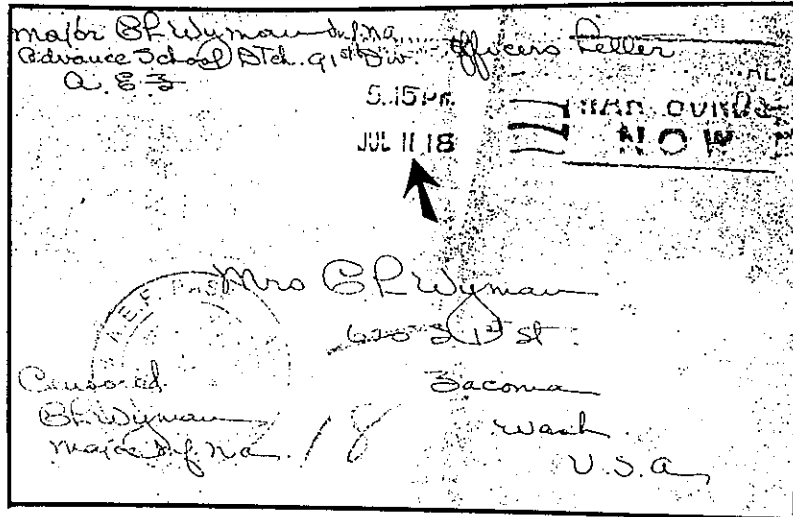 Major CR Wyman Inf. Na.
Advance School Dtch. 91st Div.
A. E. F.
Officers Letter
5.15 PM
JUL 11 18
WAR
NOW
A.E.F.
Mrs CR Wyman
620 S 1st St.
Tacoma
Wash
U.S.A.
Censored
CR Wyman
Major Inf Na.
18